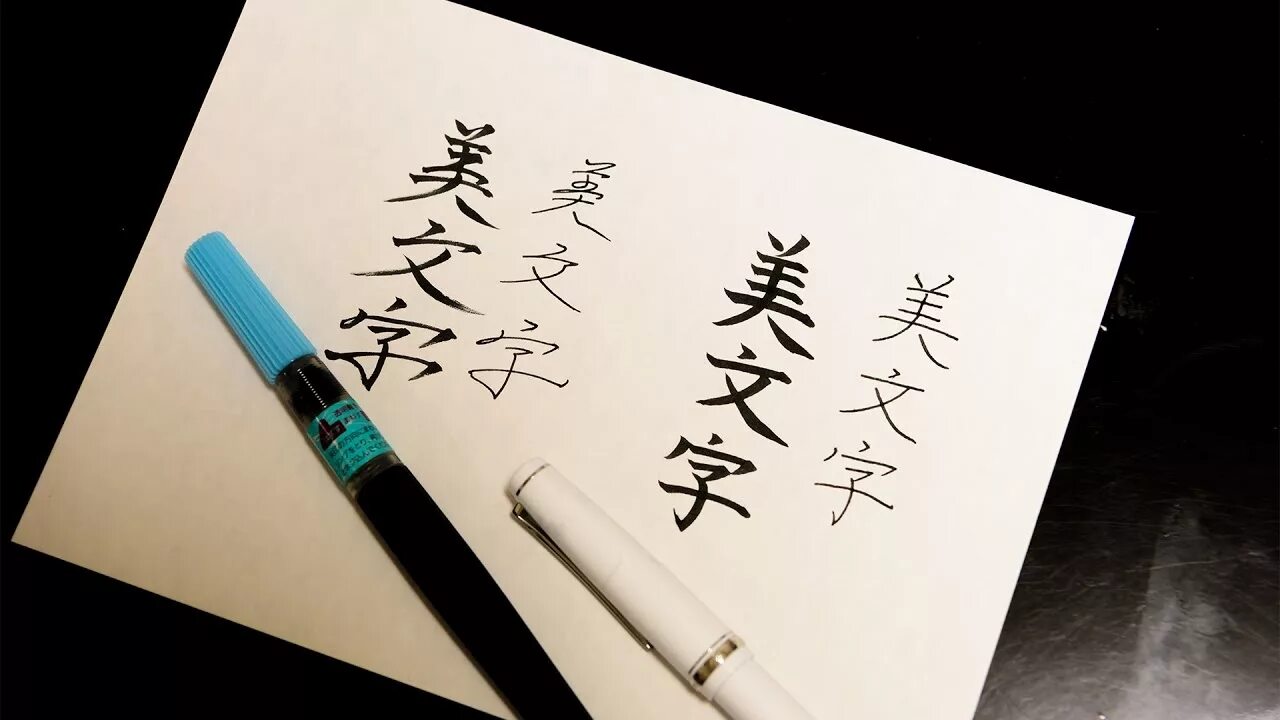 美文字
美文字
美文字
美文字